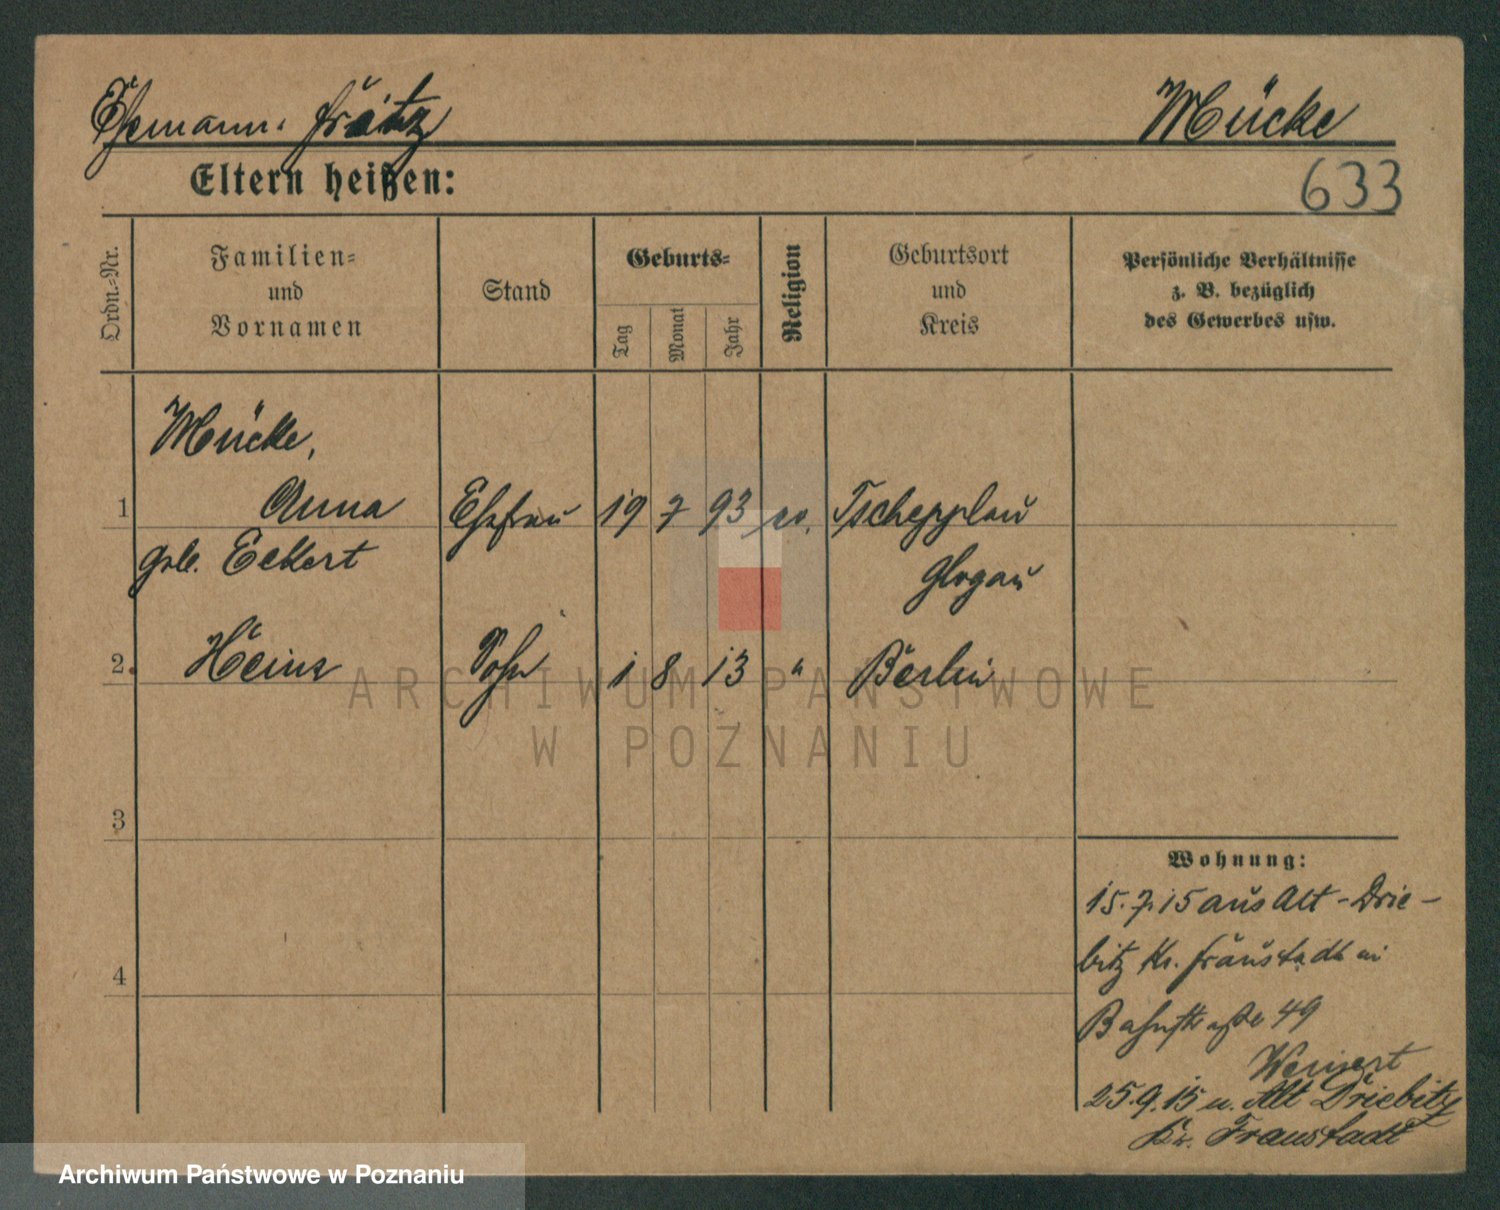 Ehemann: Fritz Mücke
Eltern heißen: 633
Ordn.-Nr.
Familien-
und
Vornamen
Stand
Geburts-
Tag
Monat
Jahr
Religion
Geburtsort
und
Kreis
Persönliche Verhältnisse
z. B. bezüglich
des Gewerbes usw.
Mücke,
1 Anna Ehefrau 19 7 93 ev. Tschepplau
geb. Eckert Glogau
2. Heinz Sohn 1 8 13 " Berlin
3
4
Wohnung:
15.7.15 aus Alt-Drie-
bitz Kr. Fraustadt in
Bahnstraße 49
Weinert
25.9.15 n. Alt Driebitz
Kr. Fraustadt
ARCHIWUM PAŃSTWOWE
W POZNANIU
Archiwum Państwowe w Poznaniu